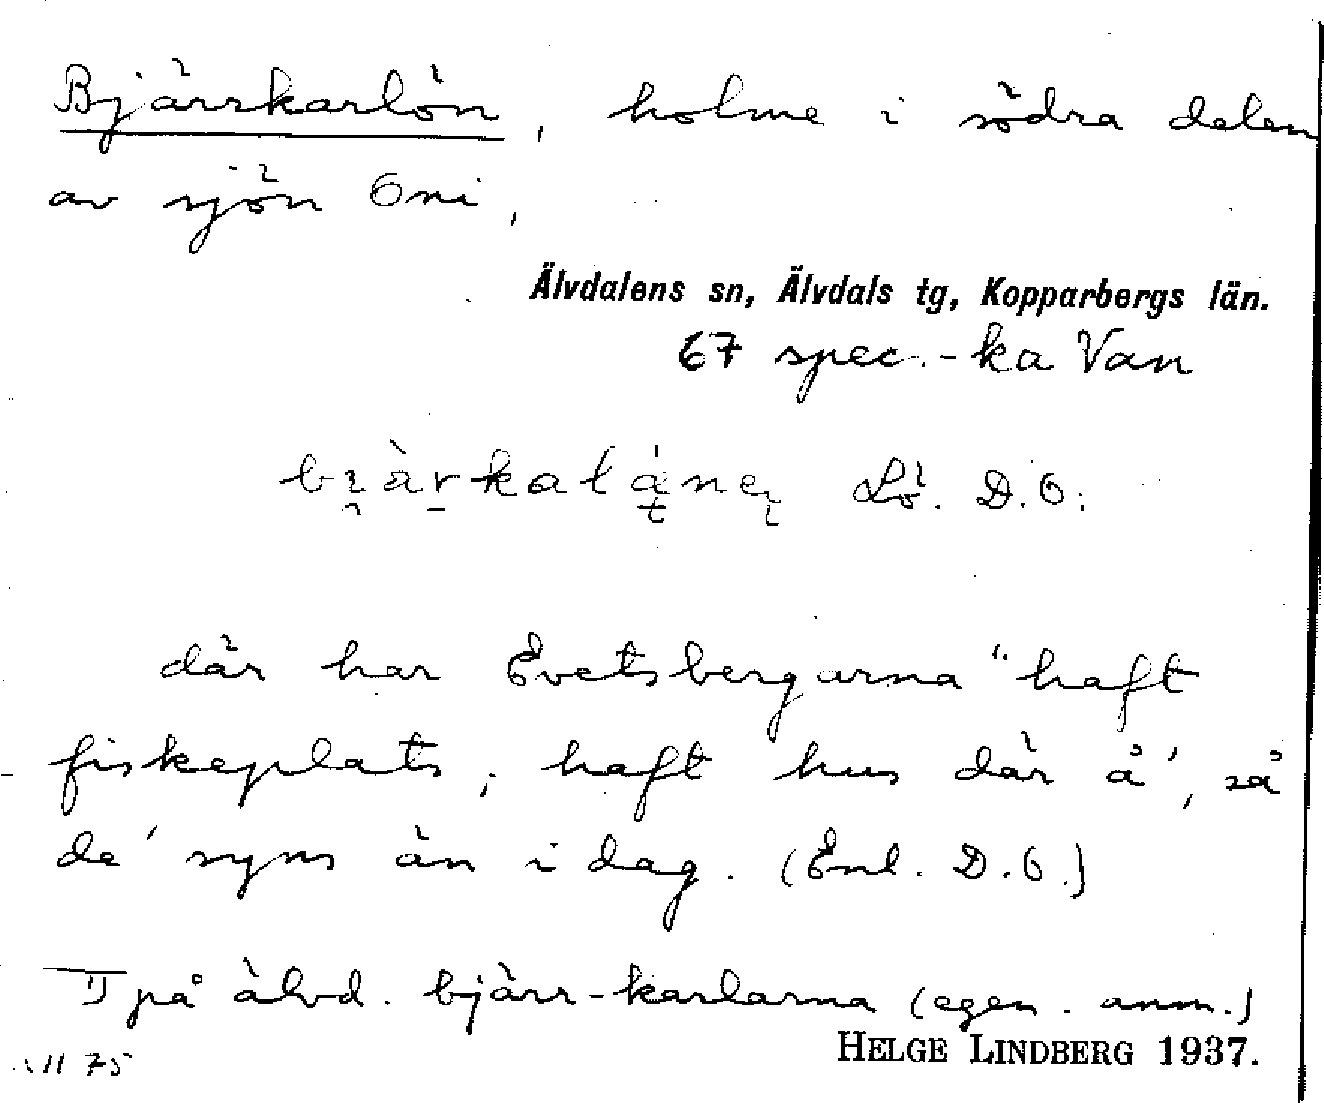 Bjärrkarlön, holme i södra delen
av sjön Oni,
Älvdalens sn, Älvdals tg, Kopparbergs län.
67 spec.-ka Van
Lö. D.O.
där har Evetsbergarna "haft
fiskeplats, haft hus där å', så
de' syns än i dag. (Enl. D.O.)
på älvd. bjärr-karlarna (egen. anm.)
HELGE LINDBERG 1937.
VII 75